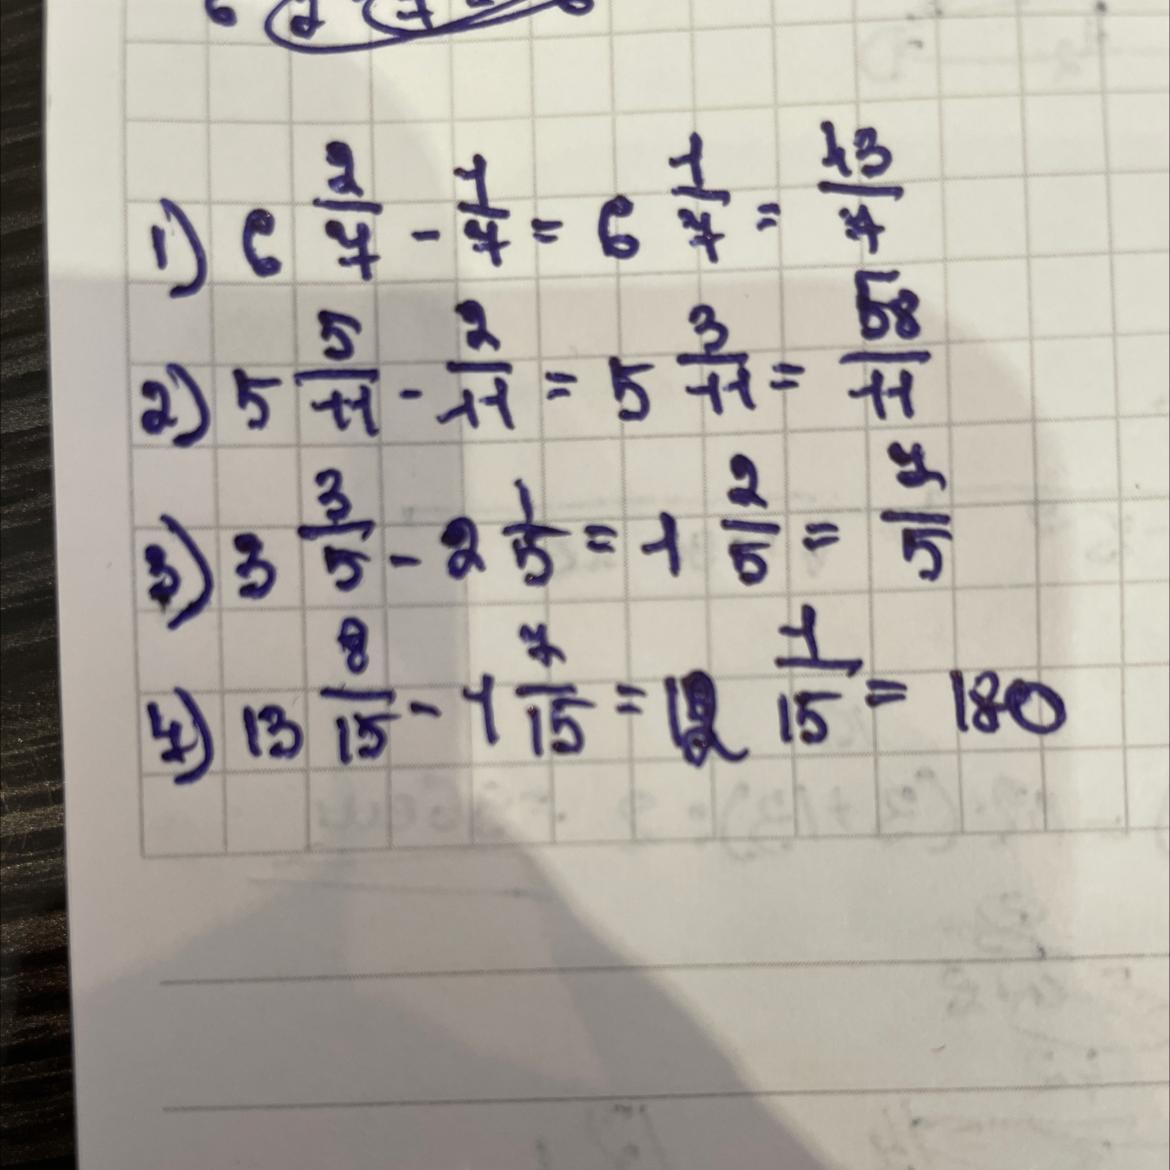 1) 6 2/7 - 1/7 = 6 1/7 = 43/7
2) 5 5/11 - 2/11 = 5 3/11 = 58/11
3) 3 3/5 - 2 1/5 = 1 2/5 = 7/5
4) 13 8/15 - 1 7/15 = 12 1/15 = 180